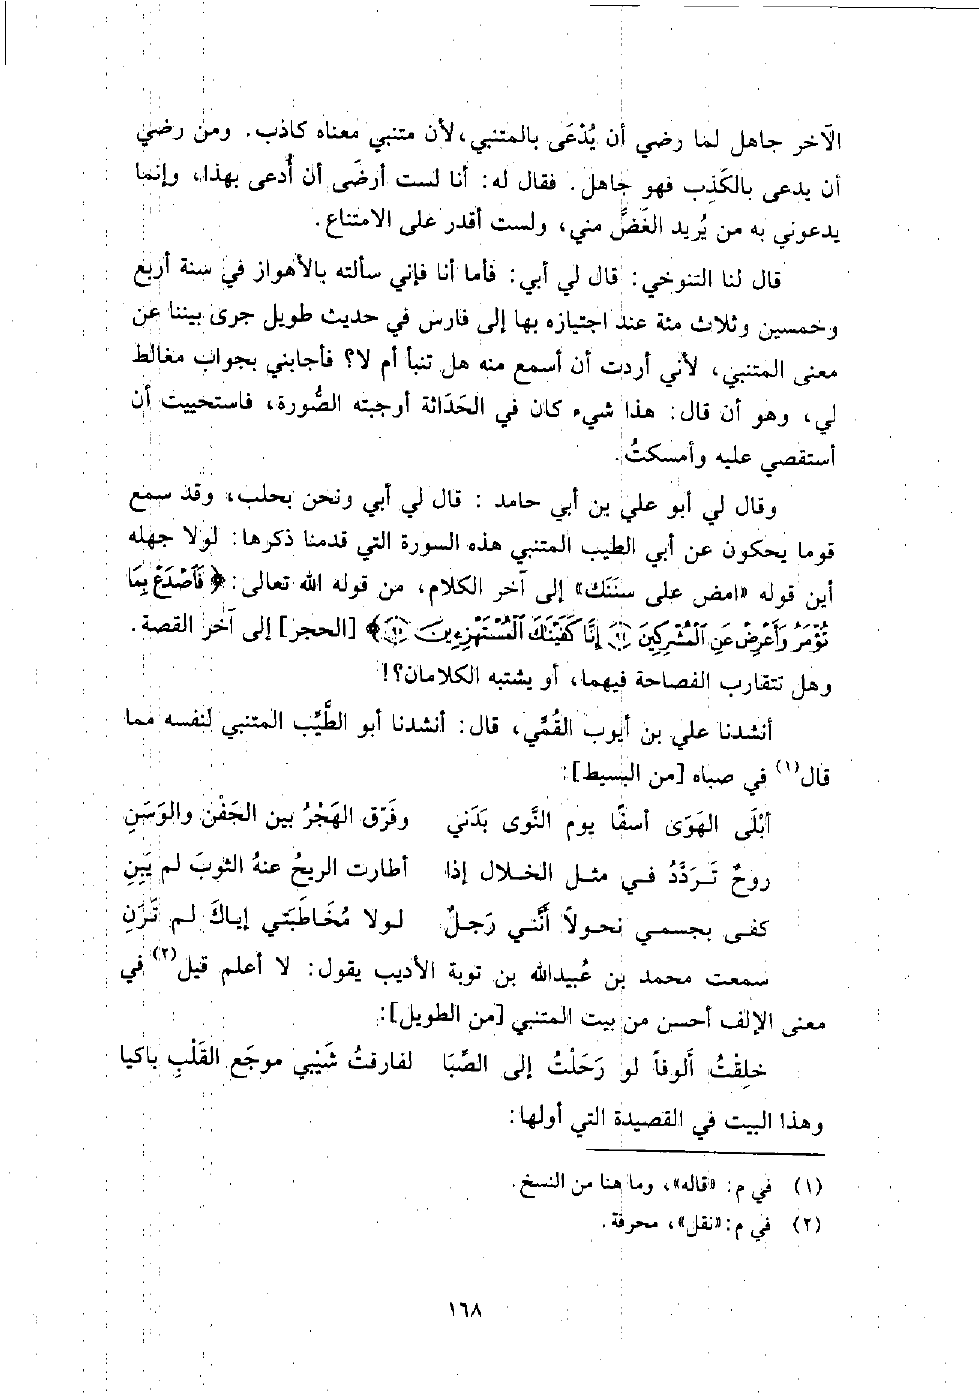 الآخر جاهل لما رضي أن يُدْعَى بالمتنبي، لأن متنبي معناه كاذب. ومن رضي
أن يدعى بالكَذِب فهو جاهل. فقال له: أنا لست أرضَى أن أُدعى بهذا، وإنما
يدعوني به من يُريد الغَضَّ مني، ولست أقدر على الامتناع.
قال لنا التنوخي: قال لي أبي: فأما أنا فإني سألته بالأهواز في سنة أربع
وخمسين وثلاث مئة عند اجتيازه بها إلى فارس في حديث طويل جرى بيننا عن
معنى المتنبي، لأني أردت أن أسمع منه هل تنبأ أم لا؟ فأجابني بجواب مغالط
لي، وهو أن قال: هذا شيء كان في الحَدَاثة أوجبته الصُّورة، فاستحييت أن
أستقصي عليه وأمسكتُ.
وقال لي أبو علي بن أبي حامد : قال لي أبي ونحن بحلب، وقد سمع
قوما يحكون عن أبي الطيب المتنبي هذه السورة التي قدمنا ذكرها: لولا جهله
أين قوله «امض على سنَنَك» إلى آخر الكلام، من قوله الله تعالى: ﴿ فَاصْدَعْ بِمَا
تُؤْمَرُ وَأَعْرِضْ عَنِ الْمُشْرِكِينَ ﴿٩٤﴾ إِنَّا كَفَيْنَاكَ الْمُسْتَهْزِءِينَ ﴿٩٥﴾﴾ [الحجر] إلى آخر القصة.
وهل تتقارب الفصاحة فيهما، أو يشتبه الكلامان؟!
أنشدنا علي بن أيوب القُمِّي، قال: أنشدنا أبو الطَّيِّب المتنبي لنفسه مما
قال(١) في صباه [من البسيط]:
أَبْلَى الهَوَى أسفًا يوم النَّوى بَدَني وفَرَّق الهَجْرُ بين الجَفْن والوَسَنِ
روحٌ تَرَدَّدُ في مثل الخلال إذا أطارت الريحُ عنهُ الثوبَ لم يَبِنِ
كفى بجسمي نحولاً أنَّني رَجلٌ لولا مُخَاطَبَتي إياكَ لم تَرَنِ
سمعت محمد بن عُبيدالله بن توبة الأديب يقول: لا أعلم قيل(٢) في
معنى الإلف أحسن من بيت المتنبي [من الطويل]:
خلِقْتُ أَلوفاً لو رَحَلْتُ إلى الصِّبَا لفارقتُ شَيْبي موجَع القَلْبِ باكيا
وهذا البيت في القصيدة التي أولها:
(١) في م: «قاله»، وما هنا من النسخ.
(٢) في م: «نقل»، محرفة.
١٦٨